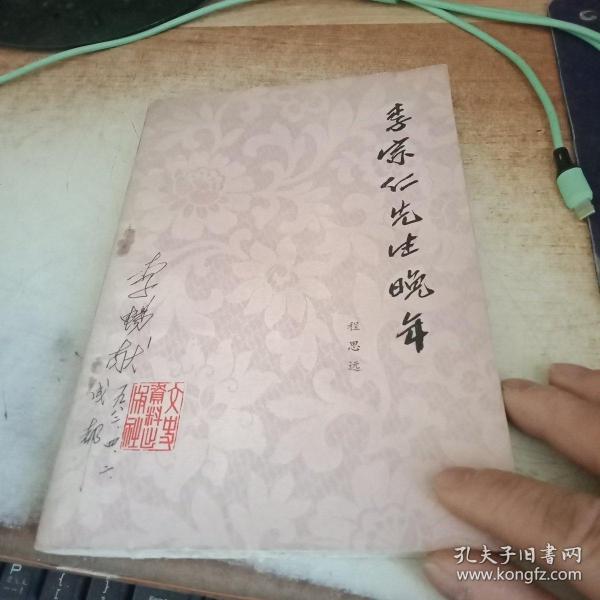 李宗仁先生晚年
程思远
文史
資料出
版社
李
成都
孔夫子旧书网
www.kongfz.com
P